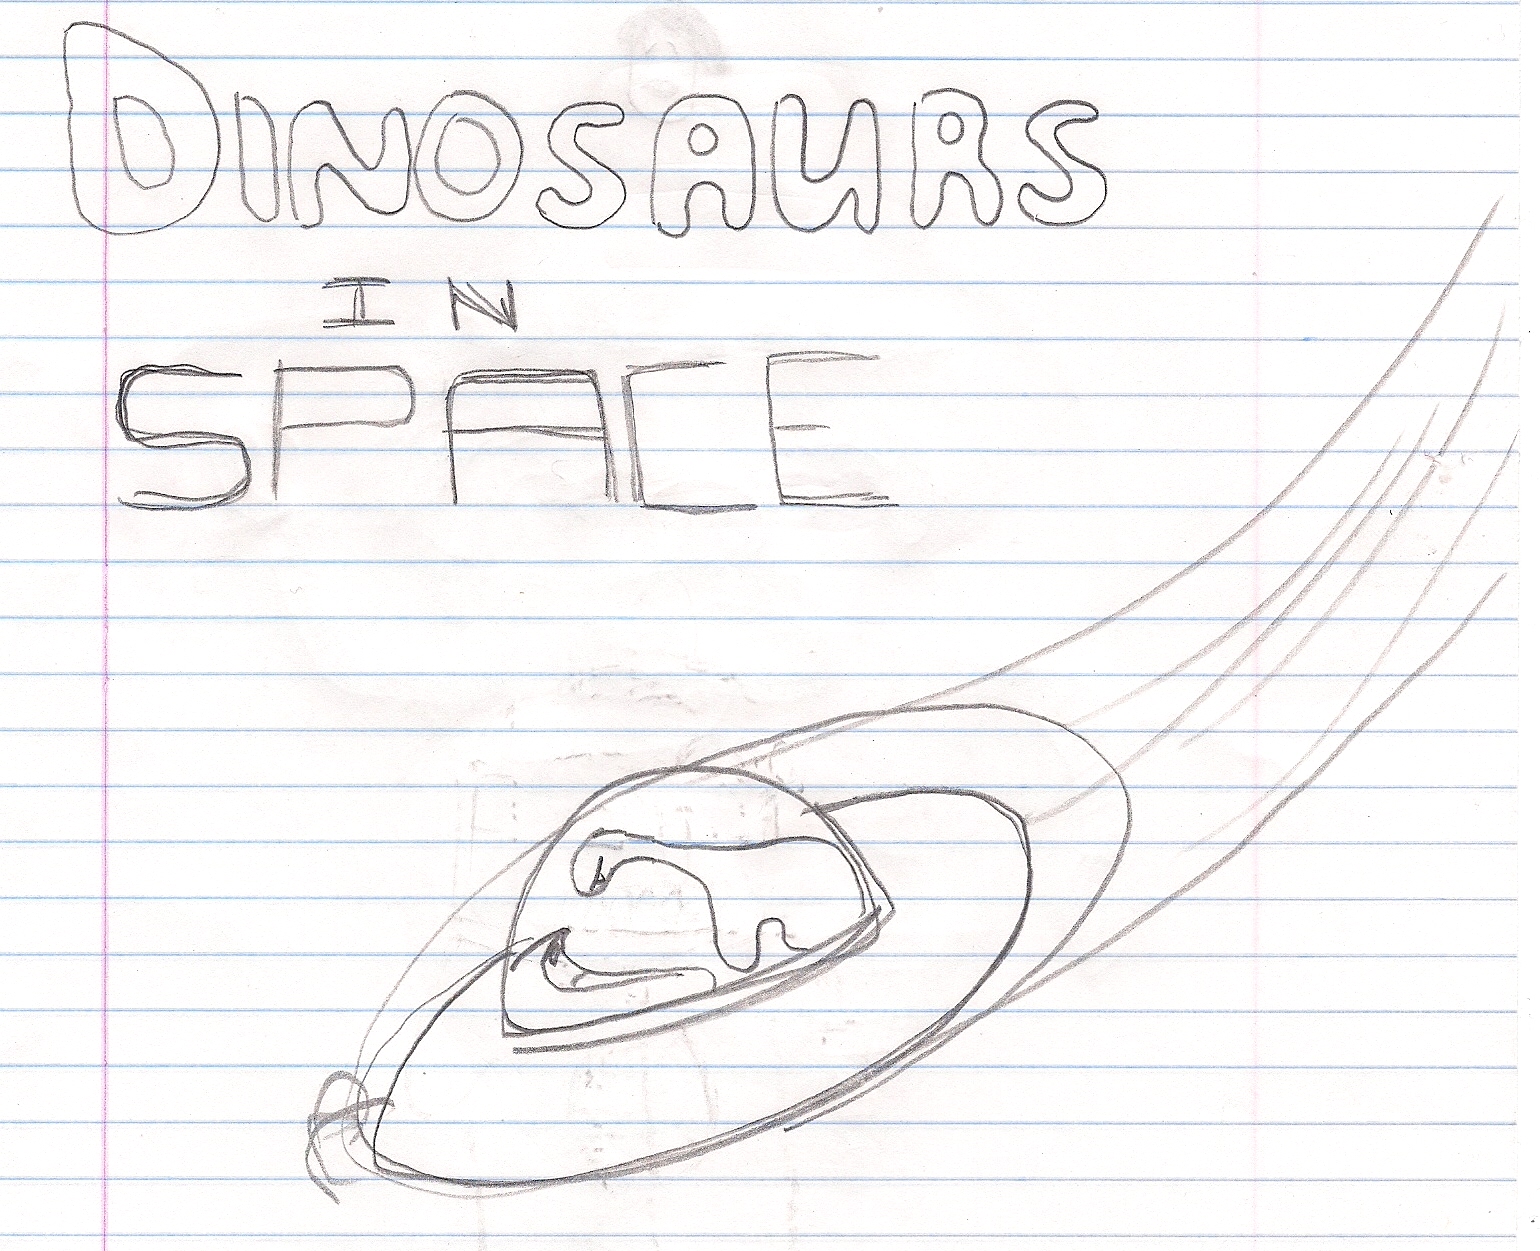 DINOSAURS
IN
SPACE